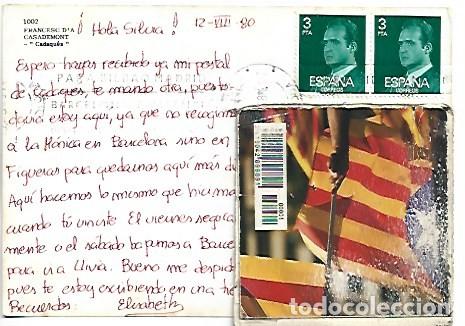 1002
FRANCESC D'A
CASADEMONT
- "Cadaqués" -
¡Hola Silvia! 12-VIII-80
3
PTA
ESPAÑA
CORREOS
3
PTA
ESPAÑA
CORREOS
Espero hayas recibido ya mi postal
de Cadaques, te mando otra, pues to-
davía estoy aquí, ya que no recogimos
a la Mónica en Barcelona sino en
Figueras para quedarnos aquí más dí
Aquí hacemos lo mismo que hicimos
cuando tú viniste. El viernes segura
mente o el sábado bajamos a Barce
para ir a Llivia. Bueno me despido
pues te estoy escribiendo en una tie
Recuerdos: Elisabeth
todocoleccion.net